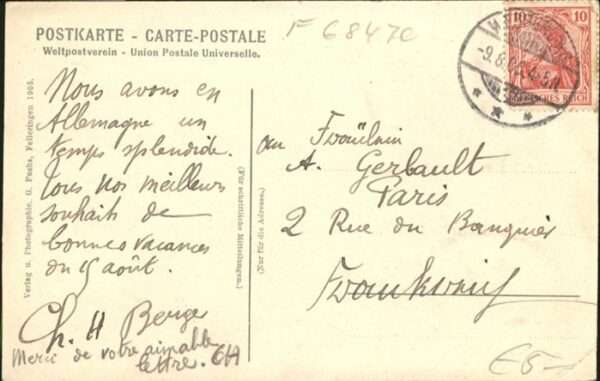 F 6847c
POSTKARTE - CARTE-POSTALE
Weltpostverein - Union Postale Universelle.
10 10
REICH
9.8.
Nous avons en
Allemagne un
temps splendide.
Tous nos meilleurs
souhaits de
bonnes vacances
du 15 août.
Ch. H Berge
Merci de votre aimable
lettre. CH
Verlag u. Photographie. G. Fuchs, Felleringen 1905.
(Für schriftliche Mitteilungen.)
(Nur für die Adresse.)
au Fraülein
A. Gerbault
Paris
2 Rue du Banquier
Frankreich
£5-